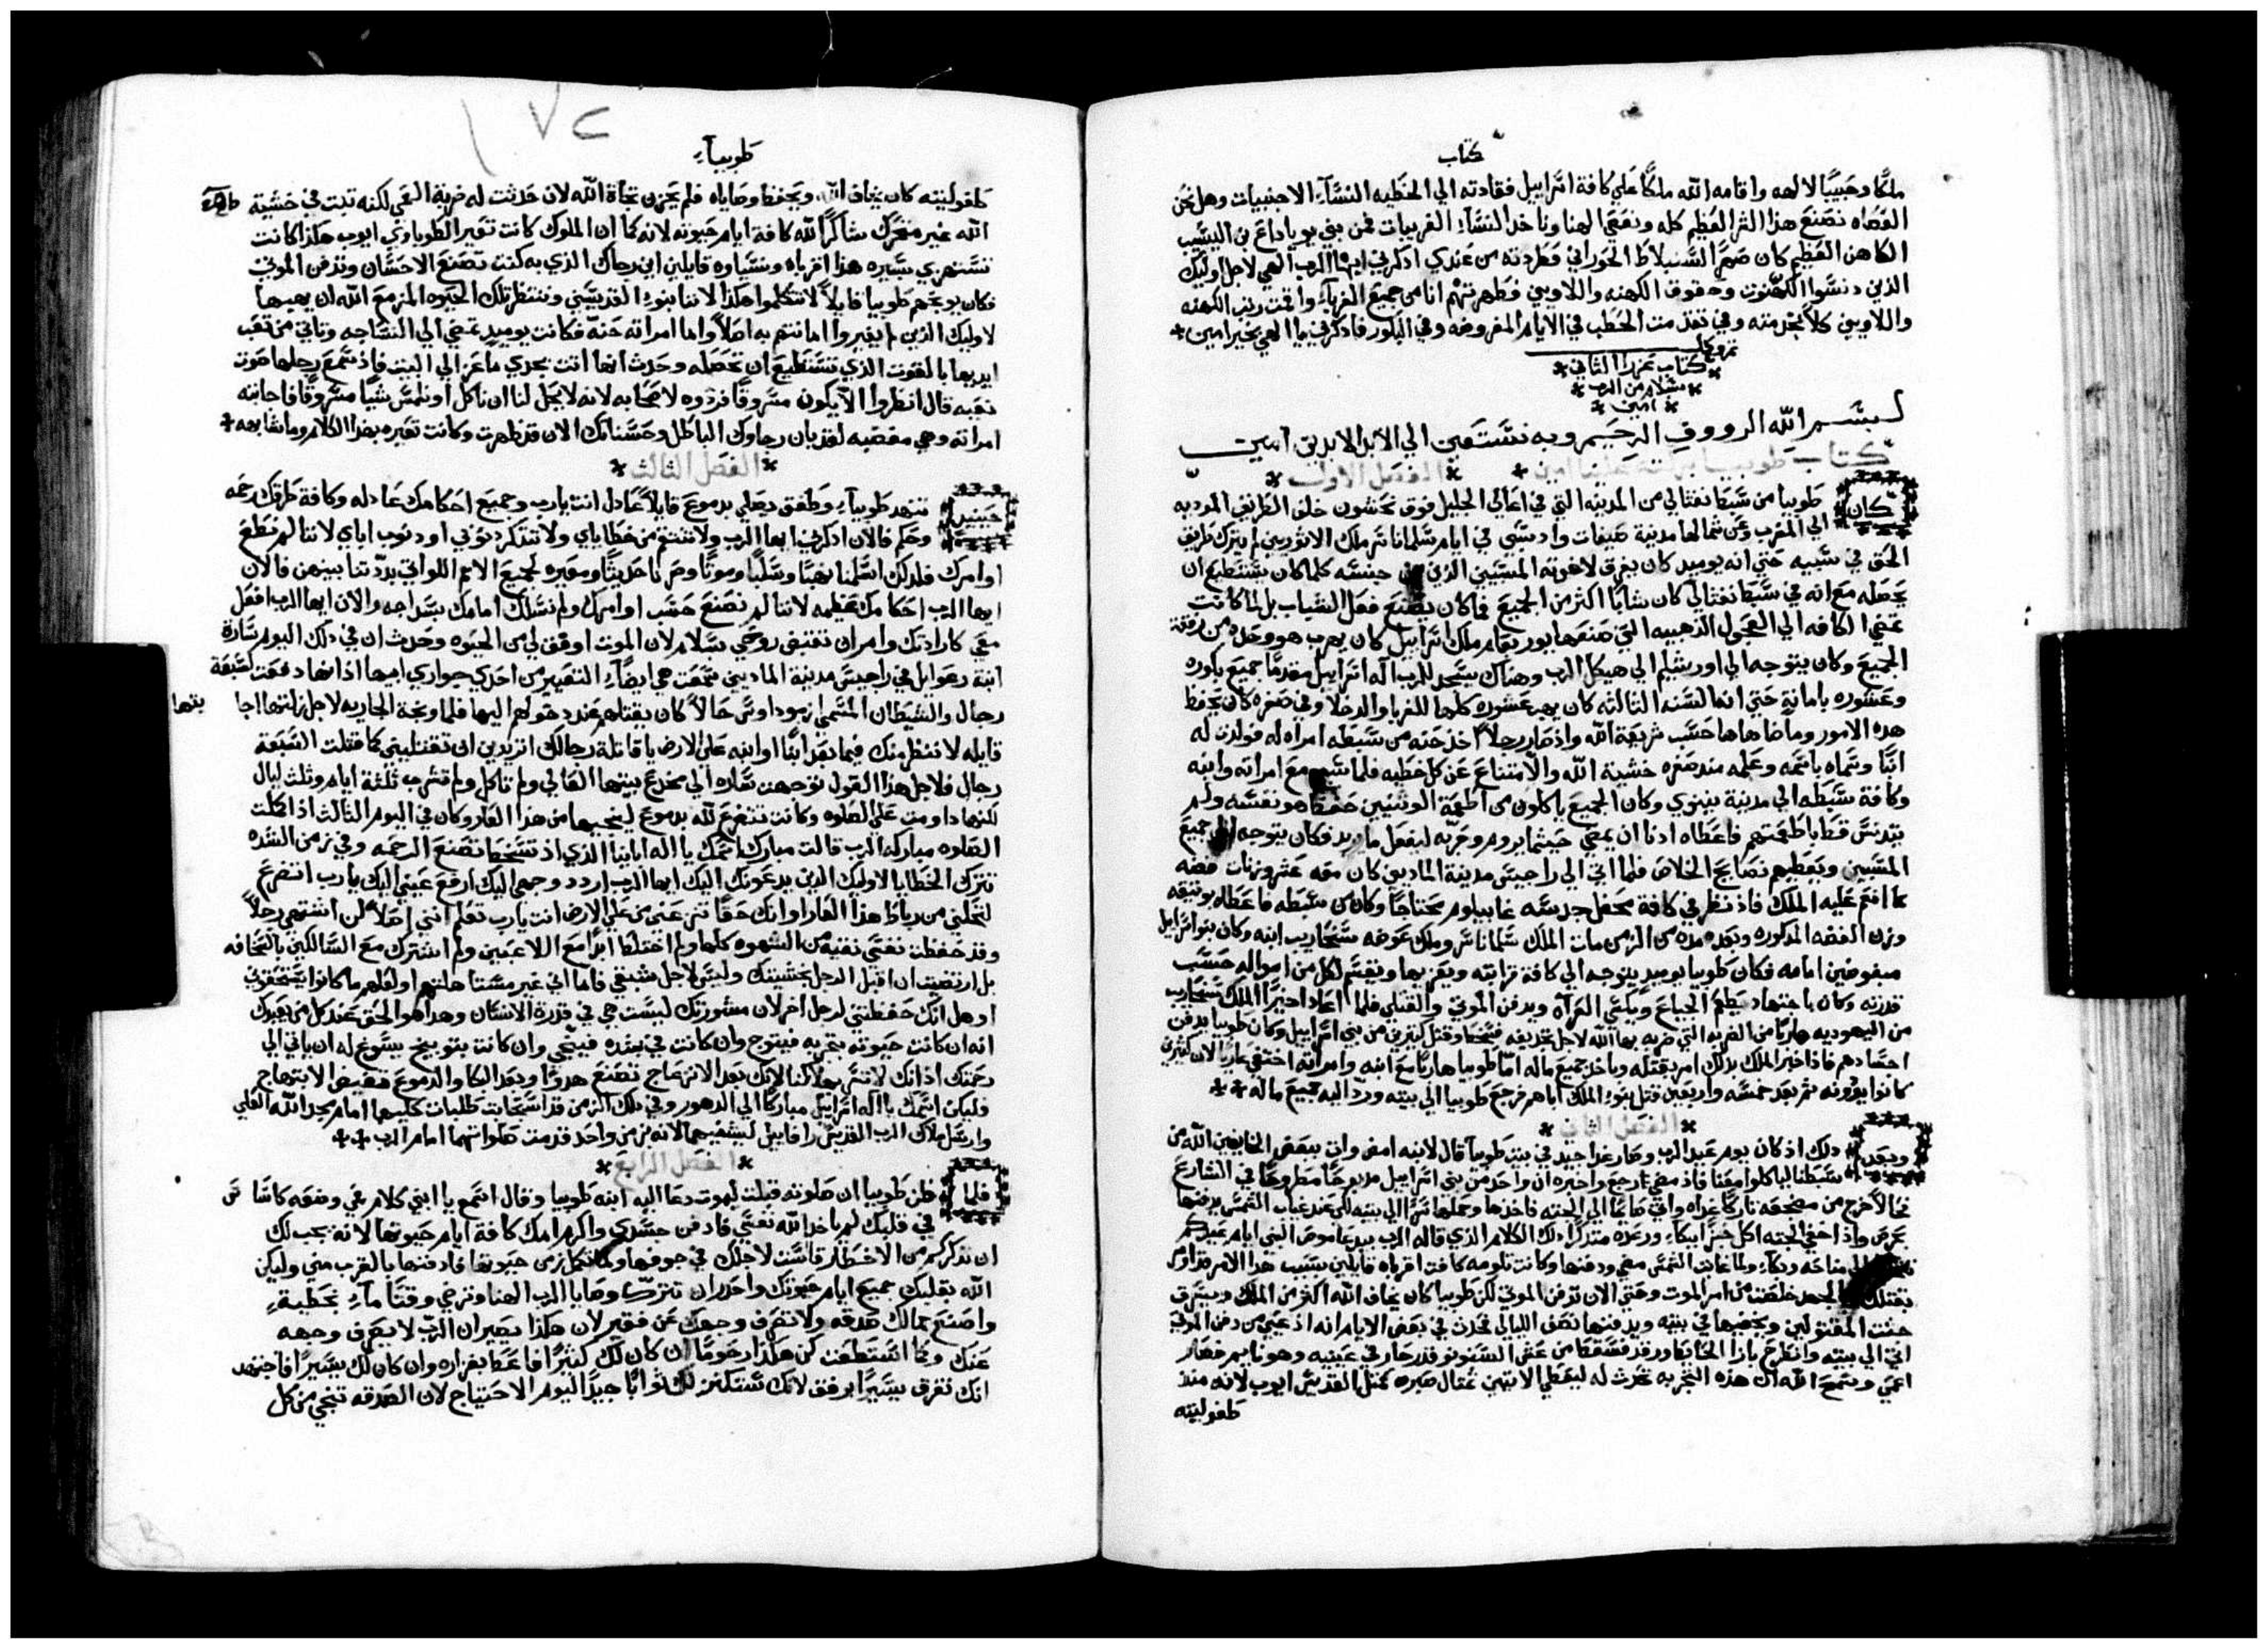 كتاب
ملكًا وحبيبًا لالهه واقامه الله ملكًا علي كافة اسراييل فقادته الي الخطيه النسآء الاجنبيات وهل نحن
العصاه نصنع هذا الشر العظيم كله ونعصي الهنا وناخد النسآء الغريبات فمن بني يوياداع بن اليشيب
الكاهن العظيم كان صهر السنبلاط الحوراني فطردته من عندي ادكرني ايها الرب الهي لاجل اوليك
الذين دنسوا الكهنوت وحقوق الكهنه واللاويين فطهرتهم انا من جميع الغربآء واقمت رتب الكهنه
واللاويين كلاً بخدمته وفي تقدمت الحطب في الايام المفروضه وفي البكور فادكرني يا الهي بخير امين
تم وكمل
كتاب عزرا الثاني
بسلام من الرب
امين
بسم الله الرووف الرحيم وبه نستعين الي الابد الابدين امين
كتاب طوبيا بركته علينا امين الفصل الاول
كان طوبيا من سبط نفتالي من المدينه التي في اعالي الجليل فوق نحشون خلف الطريق المرديه
الي المغرب وعن شمالها مدينة صيفات واد سبي في ايام سلماناسر ملك الاتوريين لم يترك طريق
الحق في سبيه حتي انه يوميد كان يفرق لاخوته المسبيين الذين من جنسه كلما كان يستطيع ان
يحصله مع انه في سبط نفتالي كان شابًا اكثر من الجميع فما كان يصنع فعل الشباب بل لما كانت
تمضي الكافه الي العجول الذهبيه التي صنعها يوربعام ملك اسراييل كان يهرب هو وحده من رفقة
الجميع وكان يتوجه الي اورشليم الي هيكل الرب وهناك يسجد للرب اله اسراييل مقدمًا جميع باكوره
وعشوره بامانه حتي انه السنه التالته كان يهب عشوره كلها للغربا والدخلا وفي صغره كان يحفظ
هده الامور وما ضاهاها حسب شريعة الله واذ صار رجلاً اخذ حنه من سبطه امراه له فولدت له
ابنًا وسماه باسمه وعلمه مند صغره خشية الله والامتناع عن كل خطيه فلما سبي مع امراته وابنه
وكافة سبطه الي مدينة نينوي وكان الجميع ياكلون من اطعمة الوثنيين حفظ هو نفسه ولم
يتدنس قط باطعمتهم فاعطاه ادنا ان يمضي حيثما يروم وحريه ليفعل ما يريد فكان يتوجه الي جميع
المسبيين ويعطيهم نصايح الخلاص فلما اتي الي راجيس مدينة الماديين كان معه عشر وزنات فضه
مما انعم عليه الملك فاذ نظر في كافة محفل جنسه غابيلوم محتاجًا وكان من سبطه فاعطاه وثيقه
وزن الفضه المدكوره وبعد مده من الزمن مات الملك سلماناسر وملك عوضه سنحاريب ابنه وكان بنو اسراييل
مبغوضين امامه فكان طوبيا يوميد يتوجه الي كافة قرابته ويعزيها ويقسم لكل من امواله حسب
قدرته وكان باجتهاد يطعم الجياع ويكسي العرآه ويدفن الموتي والقتلي فلما اعاد اخيرًا الملك سنحاريب
من اليهوديه هاربًا من الضربه التي ضربه بها الله لاجل تجديفه فسخط وقتل كثيرين من بني اسراييل وكان طوبيا يدفن
اجسادهم فاذ اخبر الملك بدلك امر بقتله وياخد جميع ماله اما طوبيا هاربًا مع ابنه وامراته اختفي عاريًا لان كثيرين
كانوا يودونه ثم بعد خمسه واربعين قتل بنوء الملك اباهم فرجع طوبيا الي بيته ورد اليه جميع ماله
الفصل الثاني
وبعد دلك اذ كان يوم عيد الرب وصار غدا جيد في بيت طوبيا قال لابنه امض وات ببعض الخايفين الله من
سبطنا لياكلوا معنا فاذ مضي رجع واخبره ان واحد من بني اسراييل مدبوحًا مطروحًا في الشارع
حالاً خرج من مضجعه تاركًا غداه واتي صايمًا الي الجته فاخدها وحملها سرًا الي بيته لكي عند غياب الشمس يدفنها
بحرص واذ اخفي الجته اكل خبزًا ببكآء ورعده متدكرًا دلك الكلام الذي قاله الرب بيد عاموص النبي ايام عيدكم
الي مناحه وبكآء ولما غابت الشمس مضي ودفنها وكانت تلومه كافت اقرباه قايلين بسبب هدا الامر قد امر
بقتلك الجهد خلصت من امر الموت وحتي الان تدفن الموتي لكن طوبيا كان يخاف الله اكثر من الملك ويسرق
جثت المقتولين ويخفيها في بيته ويدفنها نصف الليالي فحدث في بعض الايام انه اد عيي من دفن الموتي
اتي الي بيته وانطرح بازا الحايط ورقد فسقط من عش السنونو قدر حار في عينيه وهو نايم فصار
اعمي وسمح الله ان هذه التجربه تحدث له ليعطي لاتيين متال صبره كمثل القديس ايوب لانه مند
طفوليته
١٧٢
طوبيآء
طفوليته كان يخاف الله ويحفظ وصاياه فلم يحزن تجاة الله لان حدثت له ضربة العمي لكنه تبت في خشية
الله غير متحرك شاكرًا لله كافة ايام حيوته لانه كما ان الملوك كانت تعير الطوباوي ايوب هكذا كانت
تستهزي بسيره هذا اقرباه ونسباوه قايلين اين رجاك الذي به كنت تصنع الاحسان وتدفن الموتي
فكان يوبخهم طوبيا قايلاً لا تتكلموا هكذا لاننا بنوء القديسين وننتظر تلك الحيوه المزمع الله ان يهبها
لاوليك الذين لم يغيروا امانتهم به اصلاً واما امراته حنة فكانت يوميد تمضي الي النساجه وتاتي من تعب
ايديها بالقوت الذي تستطيع ان تحصله وحدث انها اتت بجدي ماعز الي البيت فاذ سمع رجلها صوت
نعيه قال انظروا الا يكون مسروقًا فردوه لاصحابه لانه لا يحل لنا ان ناكل او نلمس شيًا مسروقًا فاجابته
امراته وهي مغضبه لقد بان رجاوك الباطل وحسناتك الان قد ظهرت وكانت تعيره بهدا الكلام وما شابهه
الفصل الثالث
حينيد تنهد طوبيآء وطفق يصلي بدموع قايلاً عادل انت يارب وجميع احكامك عادله وكافة طرقك رحمه
وحكم فالان ادكرني ايها الرب ولا تنتقم من خطاياي ولا تتدكر دنوبي او دنوب اباي لاننا لم نطع
اوامرك فلدلك اسلمنا نهبًا وسلبًا وموتًا وصرنا حديثًا ومعيره لجميع الامم اللواتي بددتنا بينهن فالان
ايها الرب احكامك عظيمه لاننا لم نصنع حسب اوامرك ولم نسلك امامك بسداجه والان ايها الرب افعل
معي كارادتك وامر ان تقتبض روحي بسلام لان الموت اوفق لي من الحيوه وحدث ان في دلك اليوم سارة
ابنة رعوايل في راجيس مدينة الماديين سمعت هي ايضًا التعيير من احدي جواري ابيها اذ انها دفعت لسبعة
رجال والشيطان المسمي ازموداوس حالاً كان يقتلهم عند دخولهم اليها فلما وبخة الجاريه لاجل زلتها اجابتها
قايله لا ننظر منك فيما بعد ابنًا او ابنه علي الارض يا قاتلة رجالك اتريدين ان تقتليني كما قتلت السبعة
رجال فلاجل هذا القول توجهت ساره الي مخدع بيتها العالي ولم تاكل ولم تشرب ثلثة ايام وثلث ليال
لكنها داومت علي الصلوه وكانت تتضرع لله بدموع لينجيها من هدا العار وكان في اليوم الثالث اذ اكملت
الصلوه مباركه الرب قالت مبارك اسمك يا اله اباينا الذي اذ تسخط تصنع الرحمه وفي زمن الشده
تترك الخطايا لاوليك الدين يدعونك اليك ايها الرب اردد وجهي اليك ارفع عيني اليك يا رب اتضرع
لتحلني من رباط هذا العار او انك حقًا تنزعني من علي الارض انت يارب تعلم انني اصلاً لن اشتهي رجلاً
وقد حفظت نفسي نقيه من الشهوه كلها ولم اختلط ابدًا مع اللاعبين ولم اشترك مع السالكين بالسخافه
بل ارتضيت ان اقبل الرجل بخشيتك وليس لاجل شبقي فاما اني غير مستاهلتهم او لعلهم ما كانوا يستحقوني
او هل انك حفظتني لرجل اخر لان مشورتك ليست هي في قدرة الانسان وهدا هو الحق عند كل من يعبدك
انه ان كانت حيوته بتجربه فيتوج وان كانت في شده فينجي وان كانت بتوبيخ يسوغ له ان ياتي الي
رحمتك اذ انك لا تسر بهلاكنا لانك بعد الانزعاج تصنع هدوًا وبعد البكا والدموع تفيض الابتهاج
فليكن اسمك يا اله اسراييل مباركًا الي الدهور وفي دلك الزمن قد استجابت طلبات كليهما امام مجد الله العلي
وارسل ملاك الرب القديس رافاييل ليشفيهما لانه بزمن واحد قدمت صلواتهما امام الرب
الفصل الرابع
فلما ظن طوبيا ان صلوته قبلت ليموت دعا اليه ابنه طوبيا وقال اسمع يا ابني كلام فمي وضعه كاساس
في قلبك لم ياخد الله نفسي فادفن جسدي واكرم امك كافة ايام حيوتها لانه يجب لك
ان تدكر كم من الاخطار قاست لاجلك في جوفها ولما تكمل زمن حيوتها فادفنها بالقرب مني وليكن
الله بقلبك جميع ايام حيوتك واحدر ان تترك وصايا الرب الهنا وترضي وقتًا مآء بخطية
واصنع بمالك صدقه ولا تصرف وجهك عن فقير لان هكذا يصير ان الرب لا يصرف وجهه
عنك وبما استطعت كن هكذا رحومًا ان كان لك كثيرًا فاعط بغزاره وان كان لك يسيرًا فاجتهد
انك تفرق يسيرًا برفق لانك تستكنز لك ثوابًا جيدًا ليوم الاحتياج لان الصدقه تنجي من كل